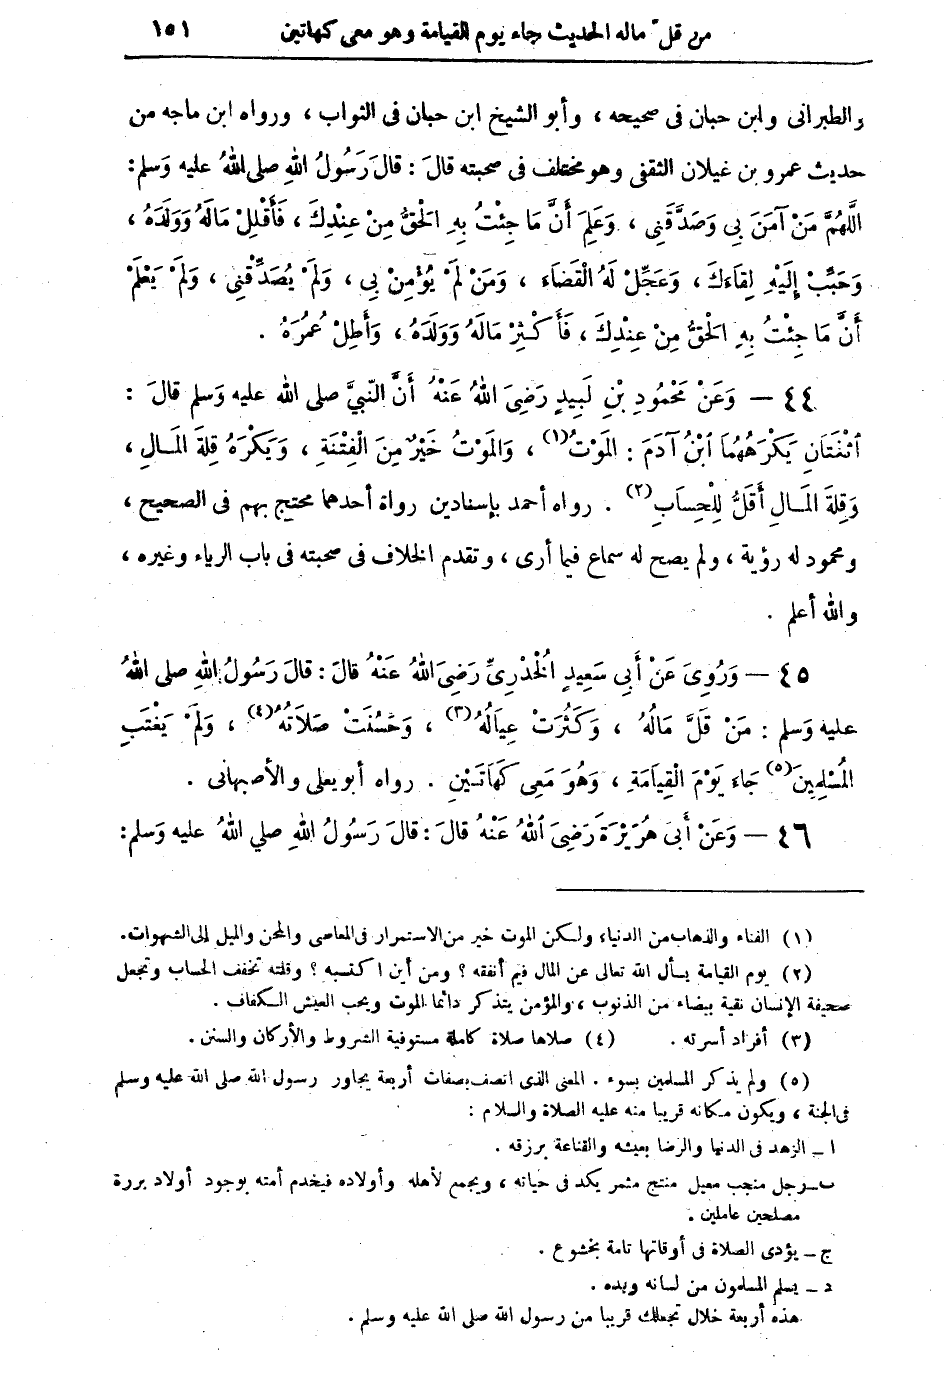 من قلّ ماله الحديث جاء يوم القيامة وهو معى كهاتين ١٥١
والطبرانى وابن حبان فى صحيحه ، وأبو الشيخ ابن حبان فى الثواب ، ورواه ابن ماجه من
حديث عمرو بن غيلان الثقفى وهو مختلف فى صحبته قالَ : قالَ رَسُولُ اللهِ صلى اللهُ عليه وَسلم :
اللَّهُمَّ مَنْ آمَنَ بِى وَصَدَّقَنِى ، وَعَلِمَ أَنَّ مَا جِئْتُ بِهِ الْحَقُّ مِنْ عِنْدِكَ ، فَأَقْلِلْ مَالَهُ وَوَلَدَهُ ،
وَحَبِّبْ إِلَيْهِ لِقَاءَكَ ، وَعَجِّلْ لَهُ الْقَضَاءَ ، وَمَنْ لَمْ يُؤْمِنْ بِى ، وَلَمْ يُصَدِّقْنِى ، وَلَمْ يَعْلَمْ
أَنَّ مَا جِئْتُ بِهِ الْحَقُّ مِنْ عِنْدِكَ ، فَأَكْثِرْ مَالَهُ وَوَلَدَهُ ، وَأَطِلْ عُمُرَهُ .
٤٤ — وَعَنْ مَحْمُودِ بْنِ لَبِيدٍ رَضِىَ اللهُ عَنْهُ أَنَّ النَّبِىَّ صلى الله عليه وَسلم قالَ :
ٱثْنَتَانِ يَكْرَهُهُمَا ٱبْنُ آدَمَ : الْمَوْتُ(١) ، وَالْمَوْتُ خَيْرٌ مِنَ الْفِتْنَةِ ، وَيَكْرَهُ قِلَّةَ الْمَـالِ ،
وَقِلَّةُ الْمَـالِ أَقَلُّ لِلْحِسَابِ(٢) . رواه أحمد بإسنادين رواة أحدهما محتج بهم فى الصحيح ،
ومحمود له رؤية ، ولم يصح له سماع فيما أرى ، وتقدم الخلاف فى صحبته فى باب الرياء وغيره ،
والله أعلم .
٤٥ — وَرُوِىَ عَنْ أَبِى سَعِيدٍ الْخُدْرِىِّ رَضِىَ اللهُ عَنْهُ قالَ : قالَ رَسُولُ اللهِ صلى اللهُ
عليه وَسلم : مَنْ قَلَّ مَالُهُ ، وَكَثُرَتْ عِيَالُهُ(٣) ، وَحَسُنَتْ صَلَاتُهُ(٤) ، وَلَمْ يَغْتَبِ
الْمُسْلِمِينَ(٥) جَاءَ يَوْمَ الْقِيَامَةِ ، وَهُوَ مَعِى كَهَاتَيْنِ . رواه أبو يعلى والأصبهانى .
٤٦ — وَعَنْ أَبِى هُرَيْرَةَ رَضِىَ ٱللهُ عَنْهُ قالَ : قالَ رَسُولُ اللهِ صلي اللهُ عليه وَسلم :
(١) الفناء والذهاب من الدنياء ولكن الموت خير من الاستمرار فى المعاصى والمحن والميل إلى الشهوات.
(٢) يوم القيامة يسأل الله تعالى عن المال فيم أنفقه ؟ ومن أين اكتسبه ؟ وقلته تخفف الحساب وتجعل
صحيفة الإنسان نقية بيضاء من الذنوب ، والمؤمن يتذكر دائما الموت ويحب العيش الكفاف .
(٣) أفراد أسرته . (٤) صلاها صلاة كاملة مستوفية الشروط والأركان والسنن .
(٥) ولم يذكر المسلمين بسوء . المعنى الذى اتصف بصفات أربعة يجاور رسول الله صلى الله عليه وسلم
فى الجنة ، ويكون مكانه قريبا منه عليه الصلاة والسلام :
ا ــ الزهد فى الدنيا والرضا بعيشه والقناعة برزقه .
ب ــ رجل منجب معيل منتج مثمر يكد فى حياته ، ويجمع لأهله وأولاده فيخدم أمته بوجود أولاد بررة
مصلحين عاملين .
ج ــ يؤدى الصلاة فى أوقاتها تامة بخشوع .
د ــ يسلم المسلمون من لسانه ويده .
هذه أربعة خلال تجعلك قريبا من رسول الله صلى الله عليه وسلم .